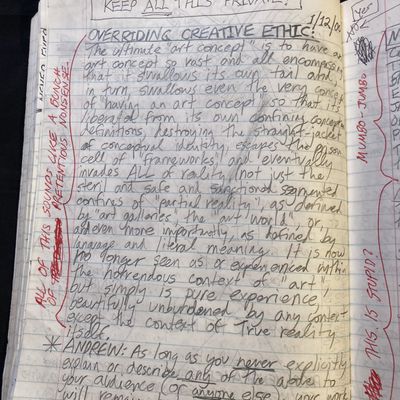 KEEP ALL THIS PRIVATE!
1/12/0
OVERRIDING CREATIVE ETHIC:
The ultimate "art concept" is to have an
art concept so vast and all encompassing
that it swallows its own tail and,
in turn, swallows even the very concept
of having an art concept so that it's
liberated from its own confining concept
definitions, destroying the straight-jacket
of conceptual identity, escapes the prison
cell of "frameworks" and eventually
invades ALL of reality (not just the
steril and safe and sanctioned segmented
confines of "partial reality", as defined
by art galleries, the "art world", or,
and even more importantly, as defined by
language and literal meaning. It is now
no longer seen as or experienced within
the horrendous context of "art",
but simply is pure experience,
beautifully unburdened by any context
except the context of True reality
itself.
* ANDREW: As long as you never explicitly
explain or describe any of the above to
your audience (or anyone else), your work
will remain
ALL OF THIS SOUNDS LIKE A BUNCH
OF PRETENTIOUS NONSENSE
MUMBO-JUMBO
THIS IS STUPID?
Yes